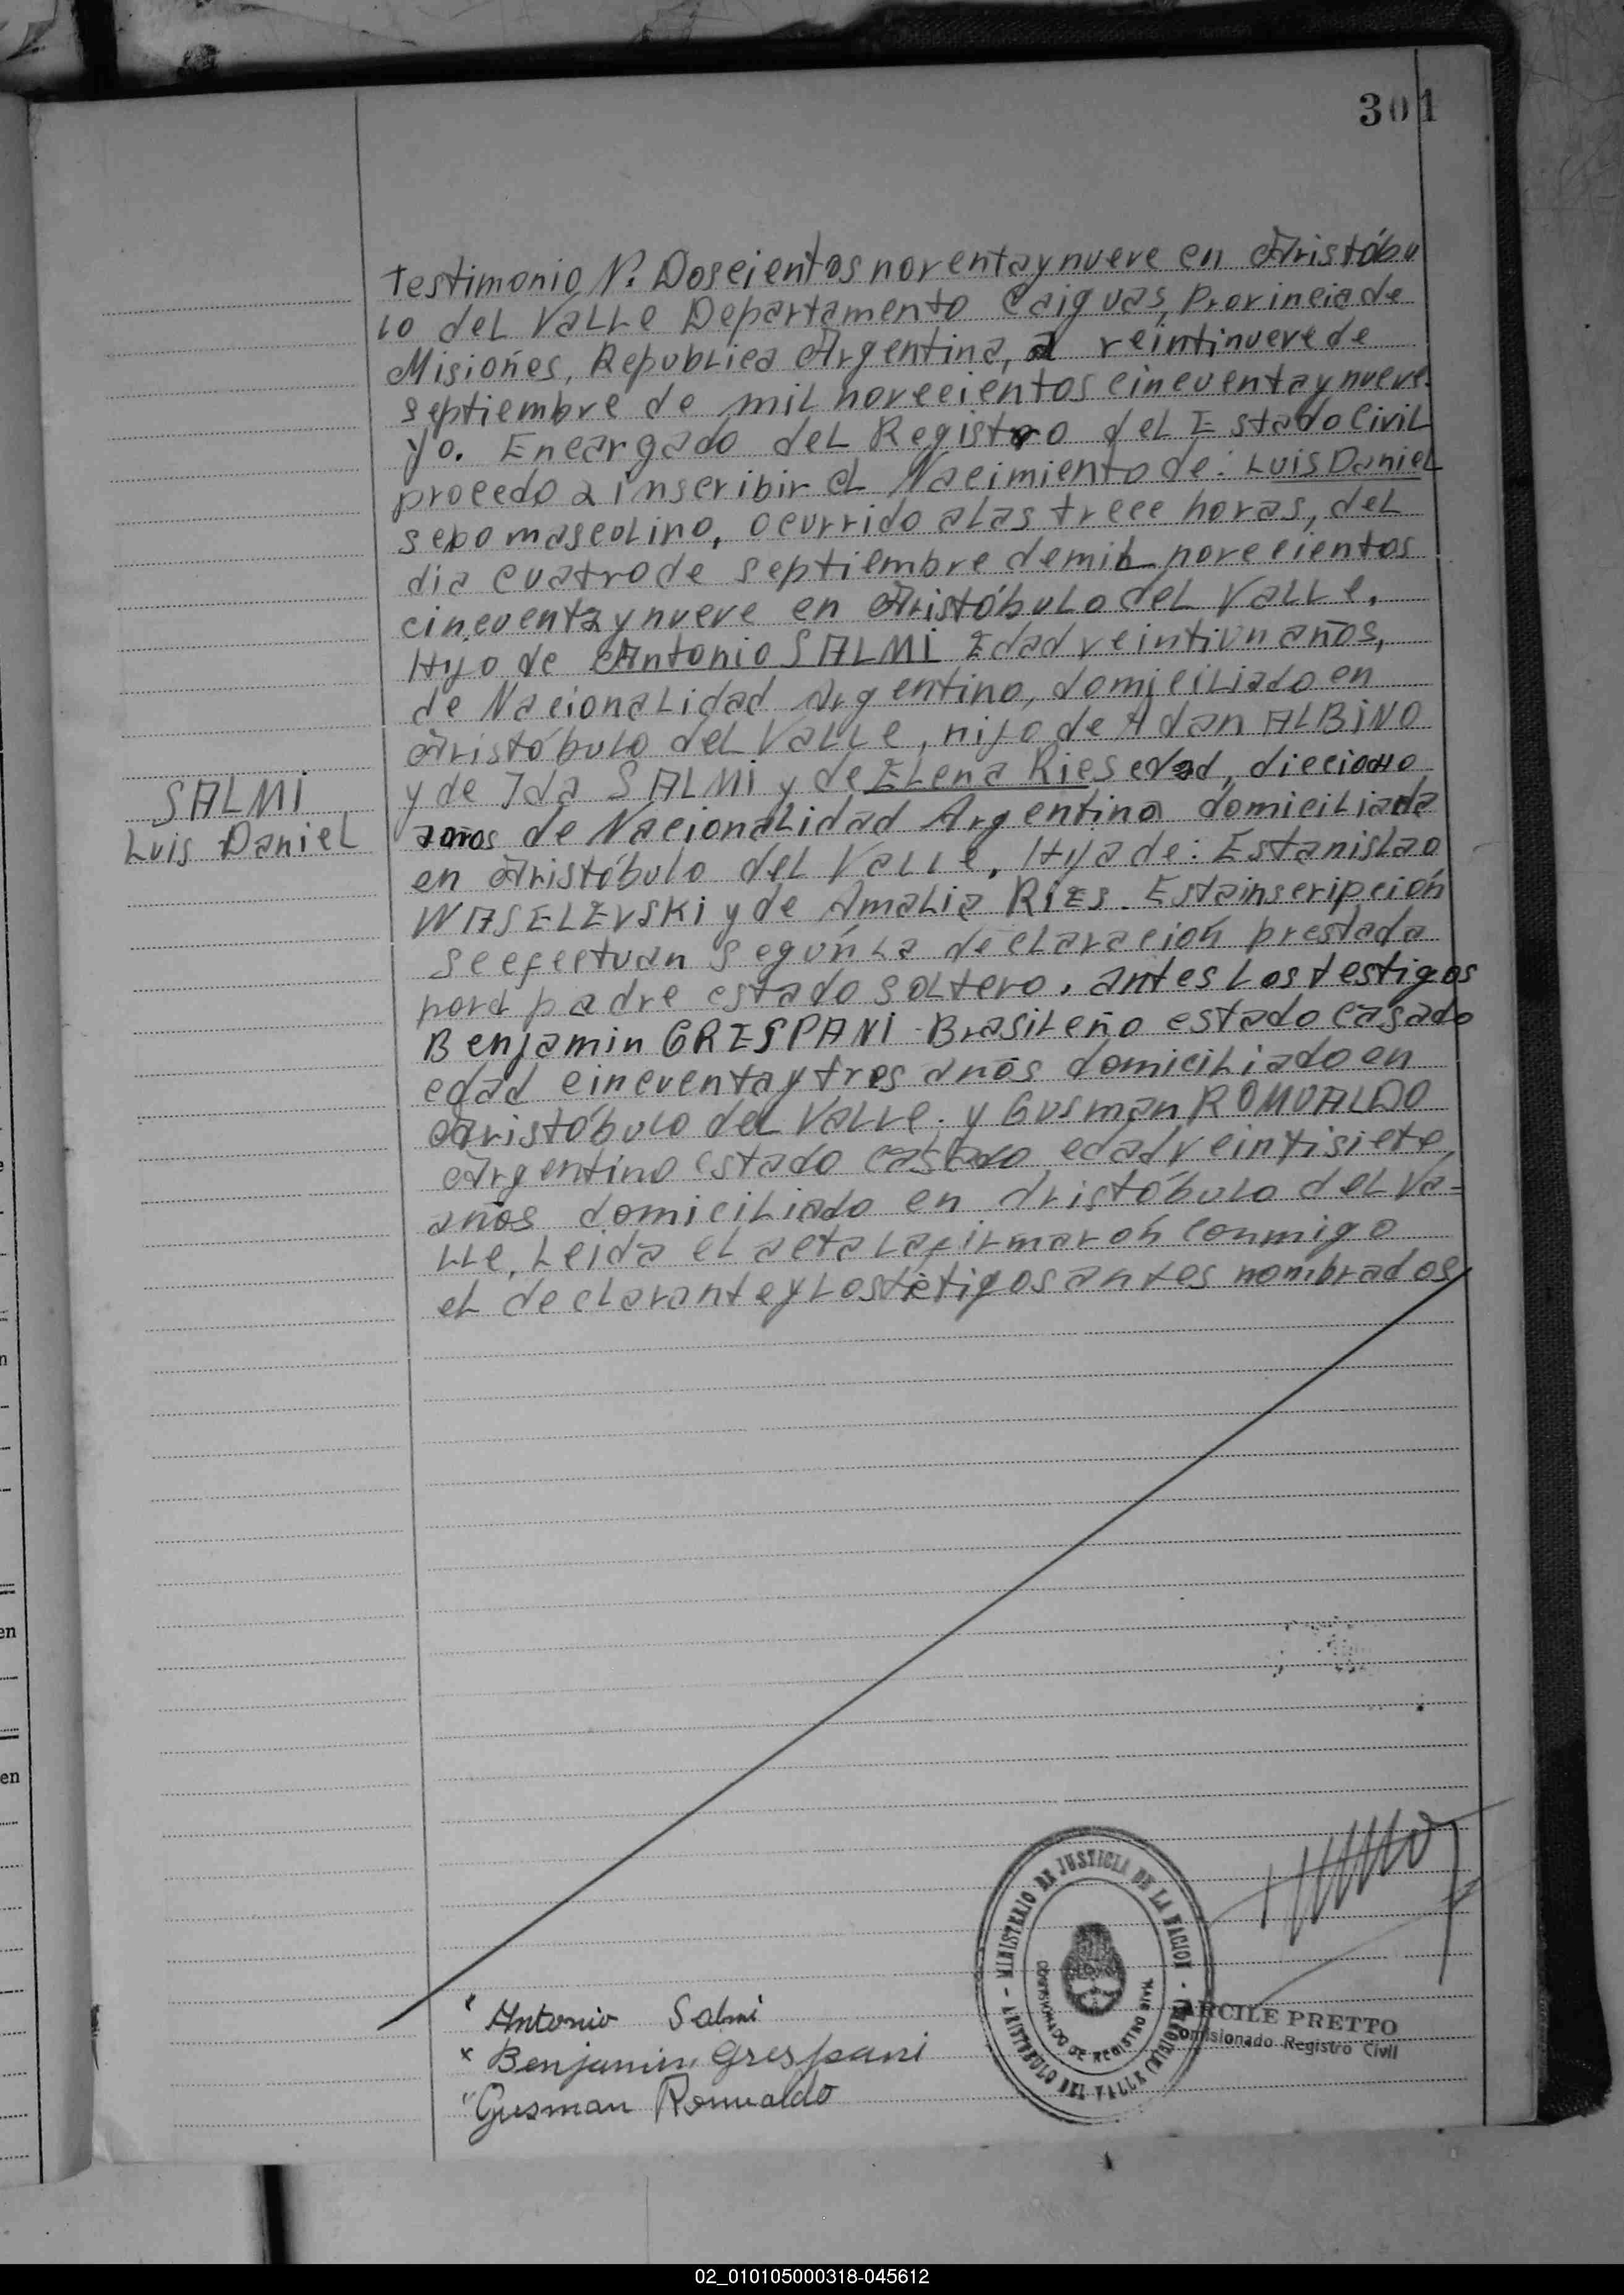 301
Testimonio N. Doscientos noventaynueve en Aristóbu
lo del Valle Departamento Caiguas, Provincia de
Misiones, Republica Argentina, a veintinueve de
septiembre de mil novecientos cincuentaynueve.
yo. Encargado del Registro del Estado Civil
procedo a inscribir el Nacimiento de: Luis Daniel
sexo mascolino, ocurrido a las trece horas, del
dia cuatro de septiembre de mil novecientos
cincuentaynueve en Aristóbulo del Valle.
Hijo de Antonio SALMI Edad veintiun años,
de Nacionalidad Argentino, domiciliado en
Aristóbulo del Valle, hijo de Adan ALBINO
SALMI
Luis Daniel
y de Ida SALMI y de Elena Ries edad, dieciocho
años de Nacionalidad Argentina domiciliada
en Aristóbulo del Valle, Hija de: Estanislao
WASELEVSKI y de Amalia RIES. Esta inscripción
se efectuan según la declaración prestada
por el padre estado soltero, antes los testigos
Benjamin GRESPANI Brasileño estado casado
edad cincuentaytres años domiciliado en
Aristóbulo del Valle. y Gusman ROMUALDO
Argentino estado casado edad veintisiete
años domiciliado en Aristóbulo del Va=
lle, Leida el acta la firmaron conmigo
el declarante y los tetigos antes nombrados
MINISTERIO DE JUSTICIA DE LA NACION
COMISIONADO DE REGISTRO CIVIL
ARISTOBULO DEL VALLE (MISIONES)
ARCILE PRETTO
Comisionado Registro Civil
x Antonio Salmi
x Benjamin Grespani
" Gusman Romualdo
02_010105000318-045612